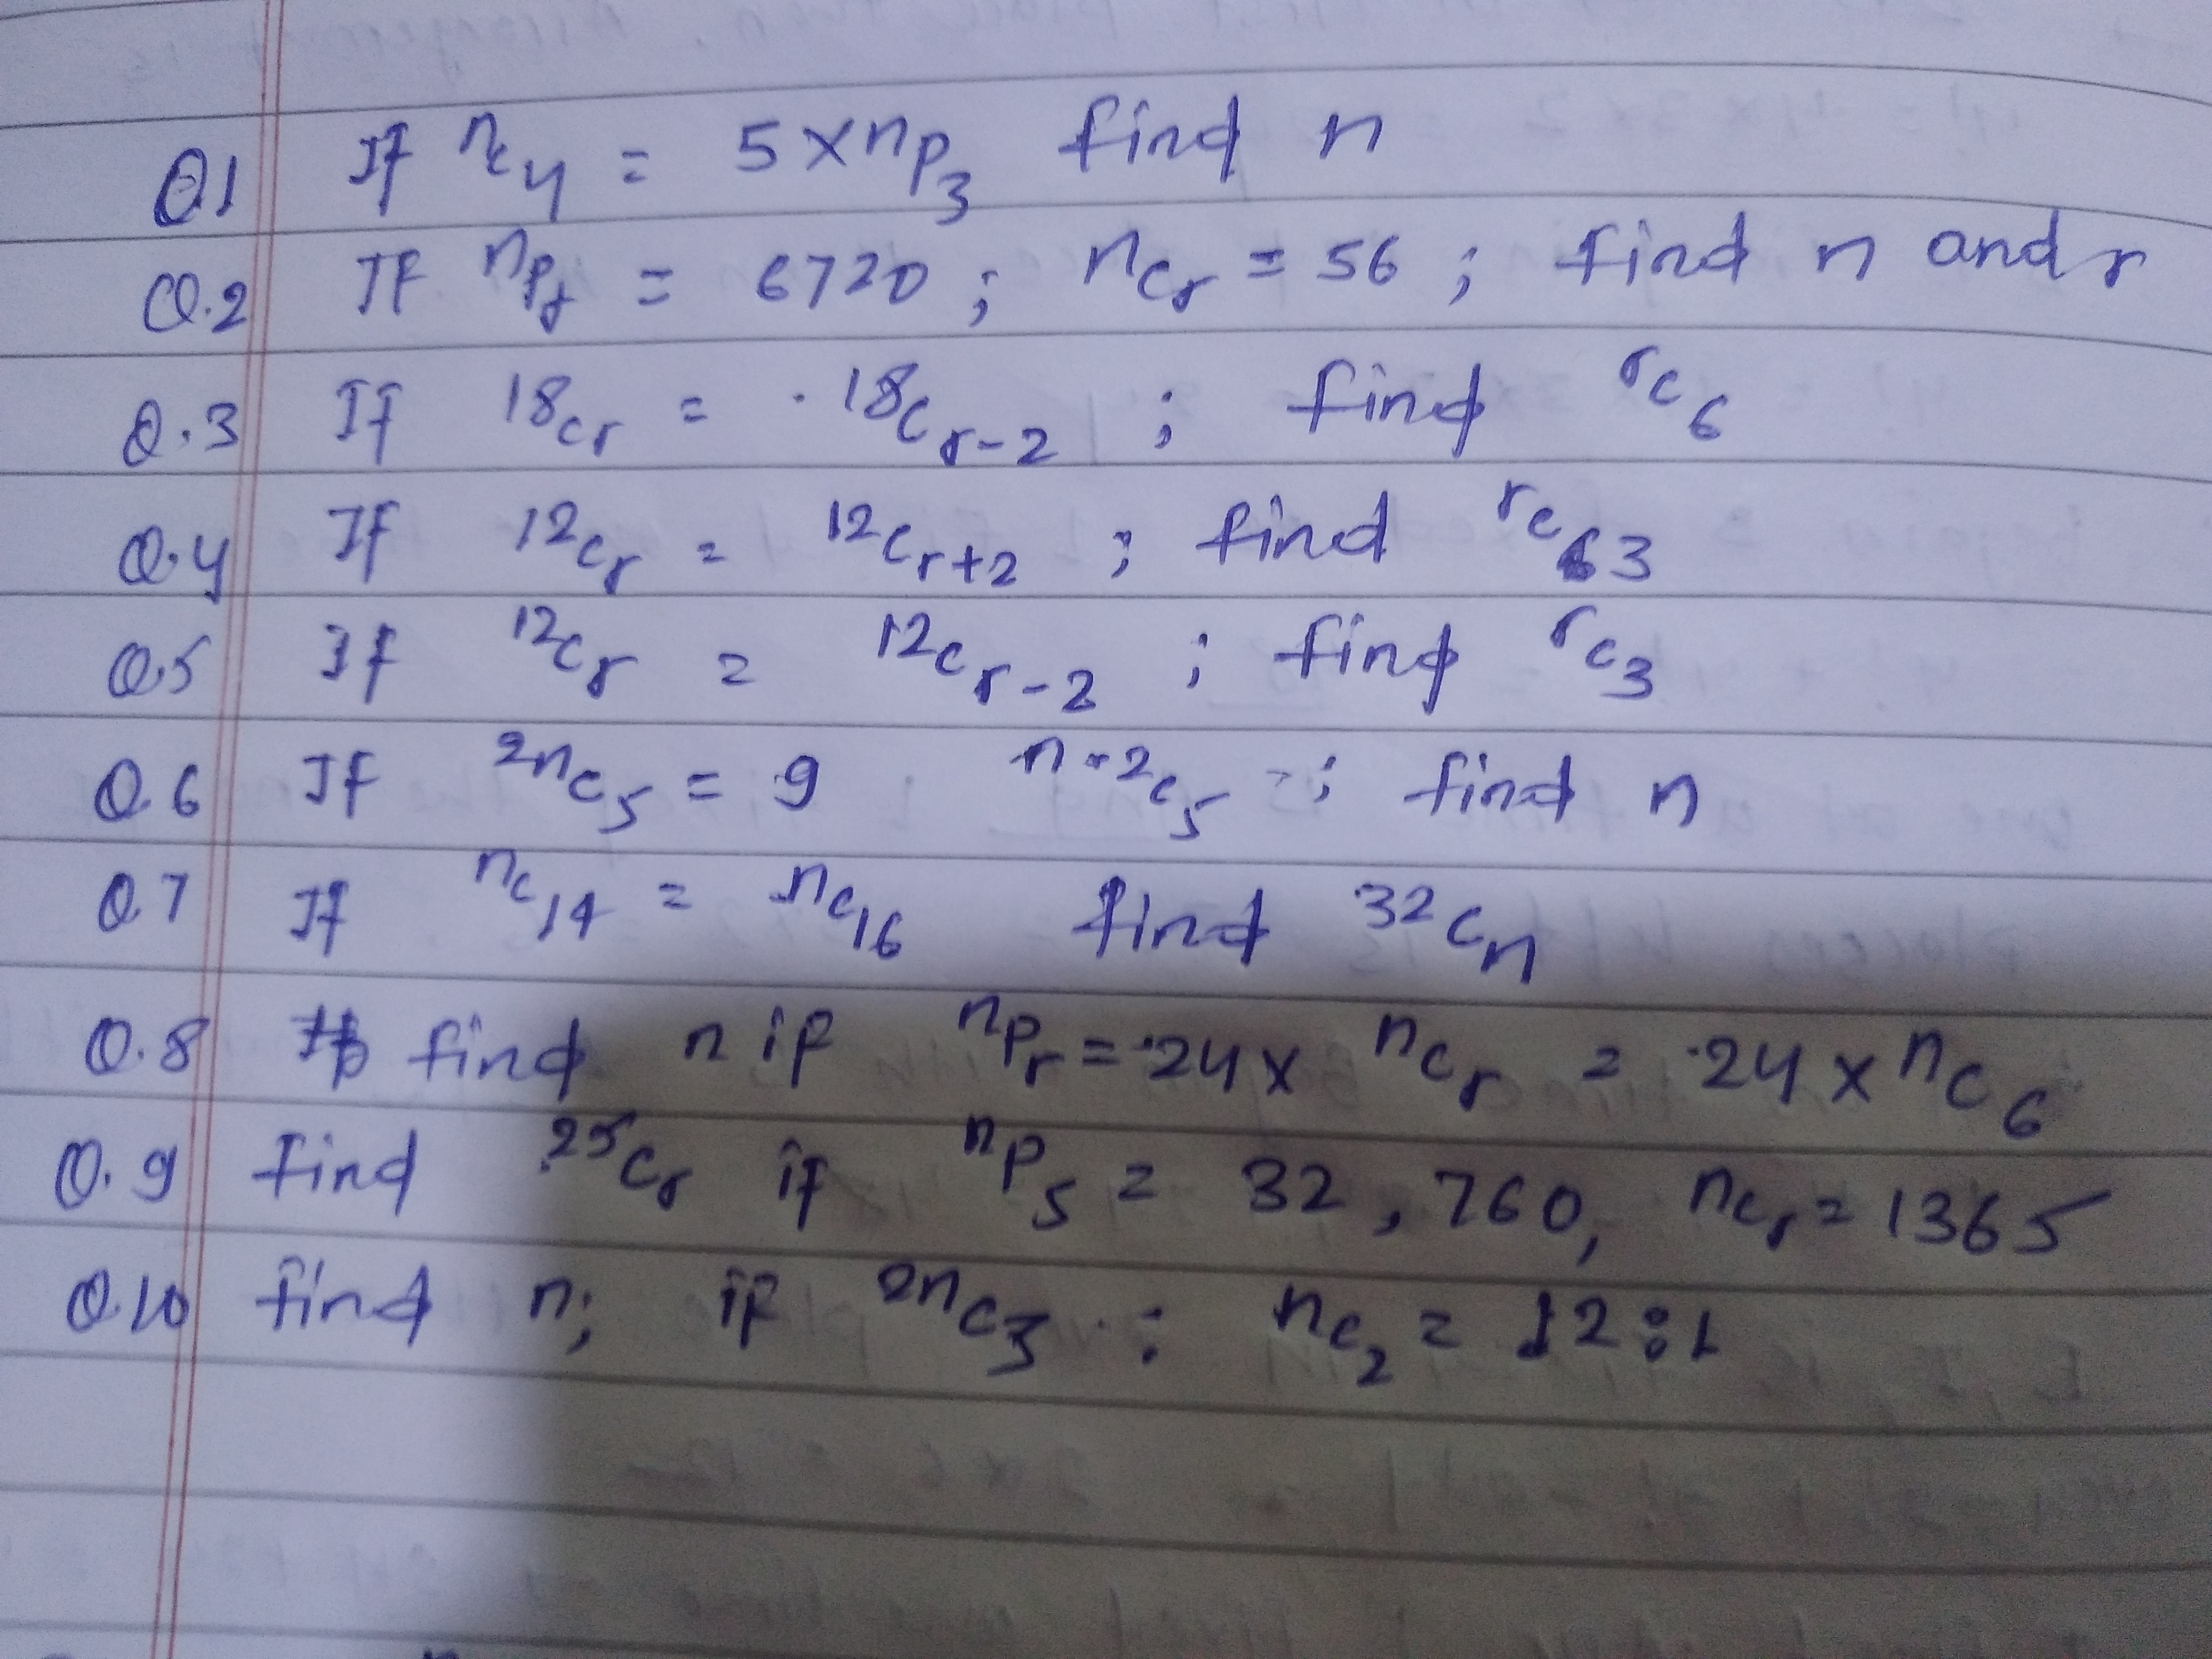 Q1 If nc4 = 5 x nP3 find n
Q.2 If nPr = 6720 ; ncr = 56 ; find n and r
Q.3 If 18cr = 18cr-2 ; find rc6
Q.4 If 12cr = 12cr+2 ; find rc3
Q.5 If 12cr = 12cr-2 ; find rc3
Q.6 If 2nc5 = 9 n-2c5 ; find n
Q.7 If nc14 = nc16 find 32cn
Q.8 find n if nPr = 24 x ncr = 24 x nc6
Q.9 find 25cr if nP5 = 32,760, ncr = 1365
Q.10 find n; if 2nc3 : nc2 = 12:1